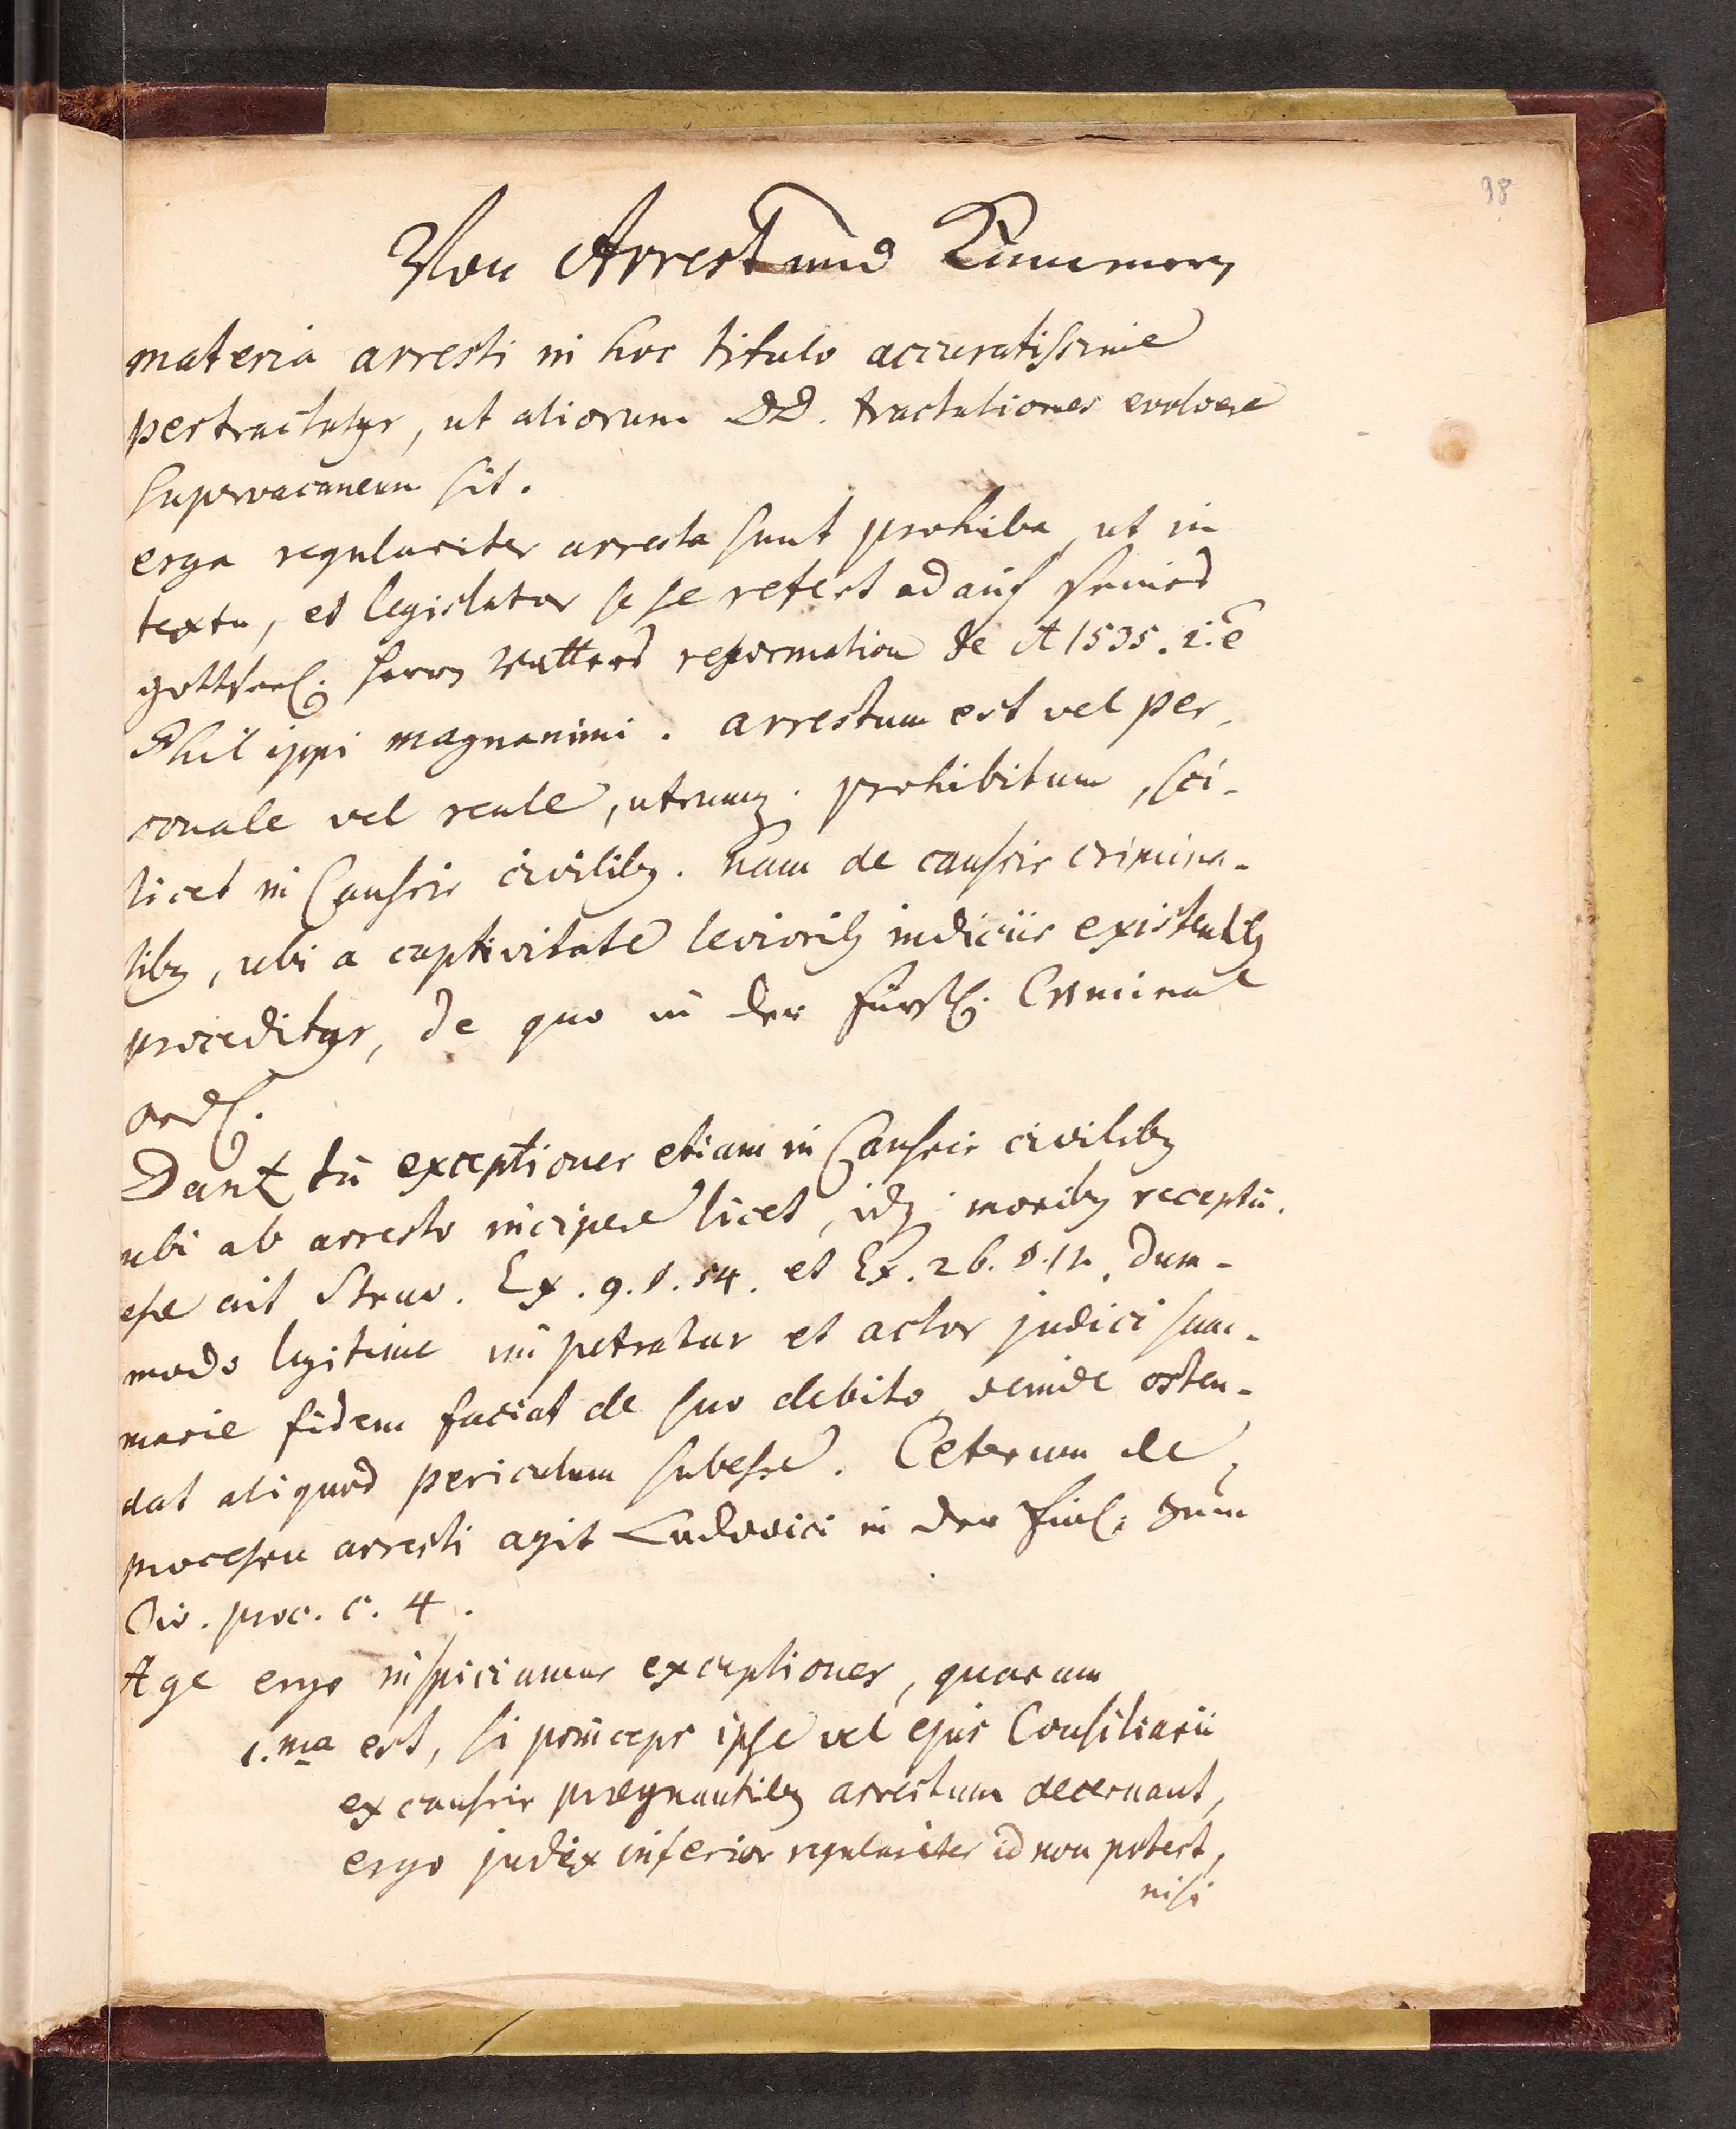 98
Von Arrest und Kummern
materia arresti in hoc titulo accuratissime
pertractatur, ut aliorum DD. tractationes evolvere
supervacaneum sit.
erga regulariter arresta sunt prohiba, ut in
textu, et legislator se se refert ad auf seines
gottseel. Herrn Vatters reformation de A 1535. i. e
Philippi magnanimi. arrestum est vel per-
sonale vel reale, utrumq. prohibitum, sci-
licet in Caussis civilibꝫ. nam de caussis crimina-
libꝫ, ubi a captivitate leviorib indiciis existentibꝫ
proceditur, de quo in der fürstl. Criminal
ordl.
Dant tn̄ exceptiones etiam in Caussis civilibꝫ
ubi ab arresto incipere licet, idqꝫ moribꝫ receptū.
esse ait Struv. Ex. 9. §. 54. et Ex. 26. §. 12. dum-
modo legitime impetratur et actor judici sum-
marie fidem faciat de suo debito, deinde osten-
dat aliquod periculum subesse. Ceterum de
processu arresti agit Ludovici in der Einl. zum
Civ. proc. c. 4.
Age ergo inspiciamus exceptiones, quarum
1.ma est, si princeps ipse vel ejus Consiliarii
ex caussis prægnantibꝫ arrestum decernant,
ergo judex inferior regulariter id non potest,
nisi